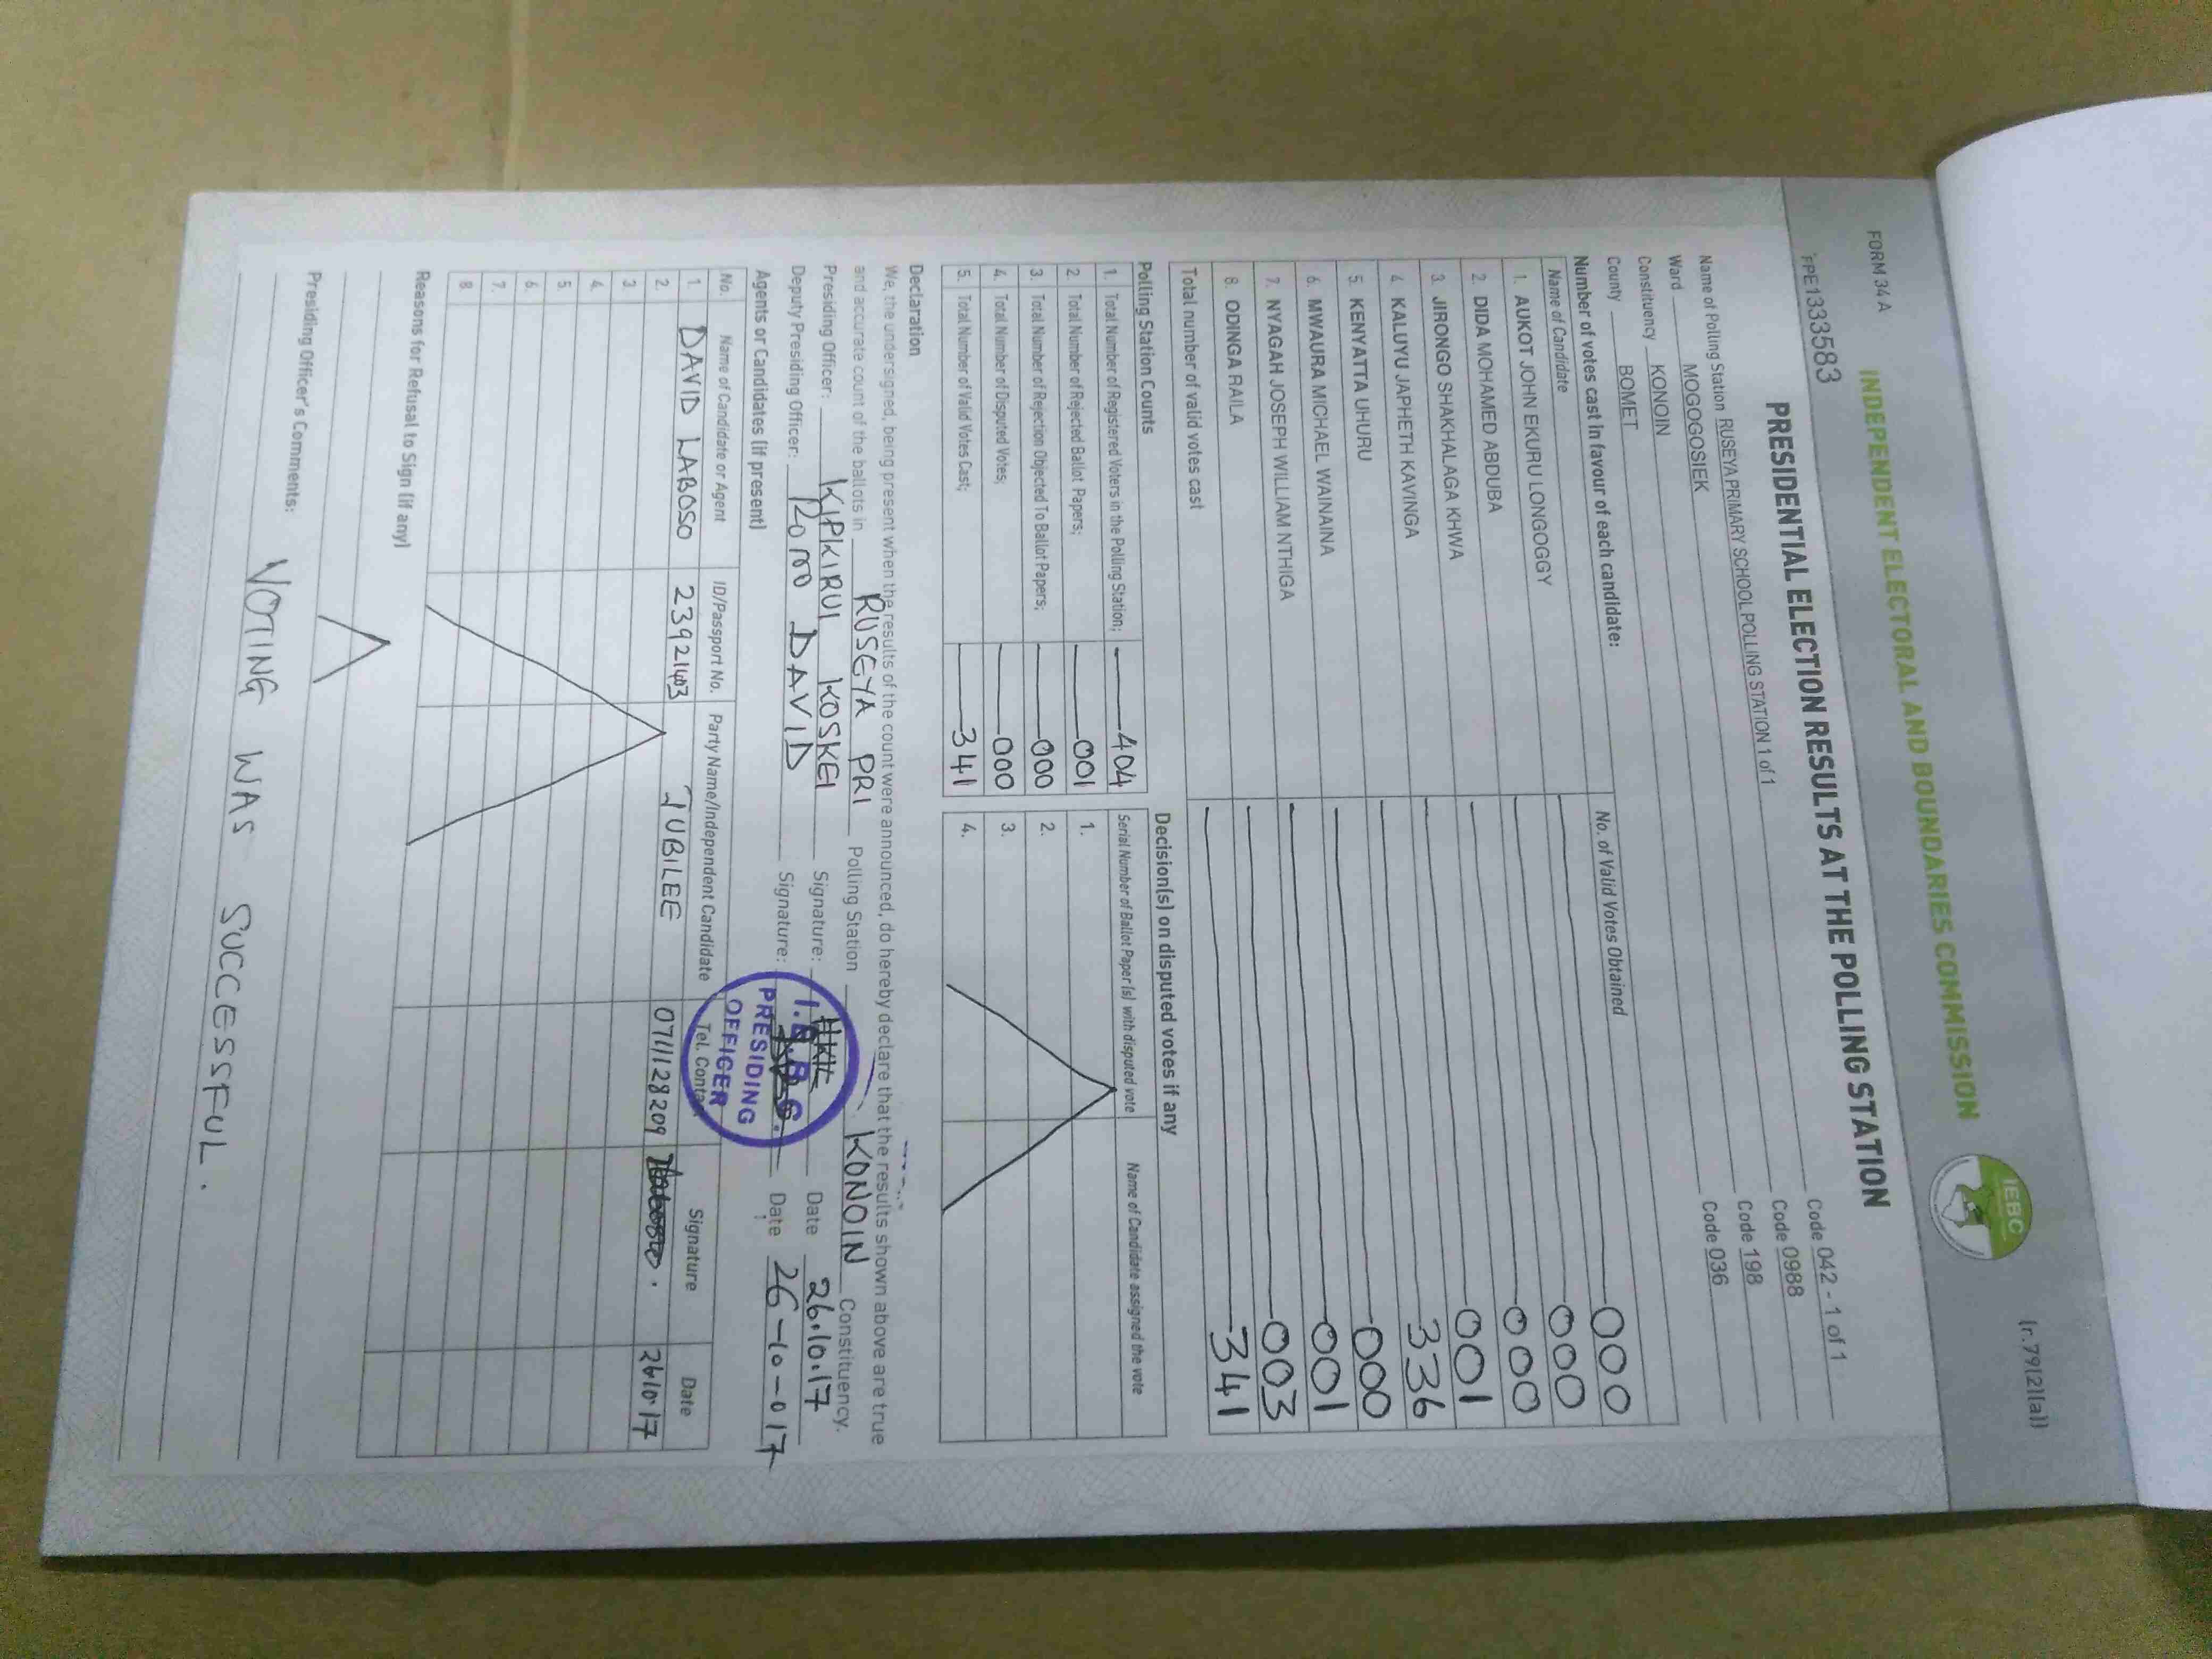 FORM 34 A
(r.79(2)(a))
INDEPENDENT ELECTORAL AND BOUNDARIES COMMISSION
IEBC
PRESIDENTIAL ELECTION RESULTS AT THE POLLING STATION
Name of Polling Station RUSEYA PRIMARY SCHOOL POLLING STATION 1 of 1 Code 042 - 1 of 1
Ward MOGOGOSIEK Code 0988
Constituency KONOIN Code 198
County BOMET Code 036
Number of votes cast in favour of each candidate:
Name of Candidate No. of Valid Votes Obtained
1. AUKOT JOHN EKURU LONGOGGY 000
2. DIDA MOHAMED ABDUBA 000
3. JIRONGO SHAKHALAGA KHWA 000
4. KALUYU JAPHETH KAVINGA 001
5. KENYATTA UHURU 336
6. MWAURA MICHAEL WAINAINA 000
7. NYAGAH JOSEPH WILLIAM NTHIGA 001
8. ODINGA RAILA 003
Total number of valid votes cast 341
Polling Station Counts
1. Total Number of Registered Voters in the Polling Station; 404
2. Total Number of Rejected Ballot Papers; 001
3. Total Number of Rejection Objected To Ballot Papers; 000
4. Total Number of Disputed Votes; 000
5. Total Number of Valid Votes Cast; 341
Decision(s) on disputed votes if any
Serial Number of Ballot Paper (s) with disputed vote Name of Candidate assigned the vote
1.
2.
3.
4.
Declaration
We, the undersigned, being present when the results of the count were announced, do hereby declare that the results shown above are true
and accurate count of the ballots in RUSEYA PRI Polling Station KONOIN Constituency.
Presiding Officer: KIPKIRUI KOSKEI Signature: Date 26.10.17
Deputy Presiding Officer: DAVID Signature: Date 26-10-017
I.E.B.C.
PRESIDING
OFFICER
Agents or Candidates (if present)
No. Name of Candidate or Agent ID/Passport No. Party Name/Independent Candidate Tel. Contact Signature Date
1. DAVID LABOSO 23921403 JUBILEE 0711128209 26.10.17
2.
3.
4.
5.
6.
7.
8.
Reasons for Refusal to Sign (if any)
Presiding Officer's Comments:
VOTING WAS SUCCESSFUL.